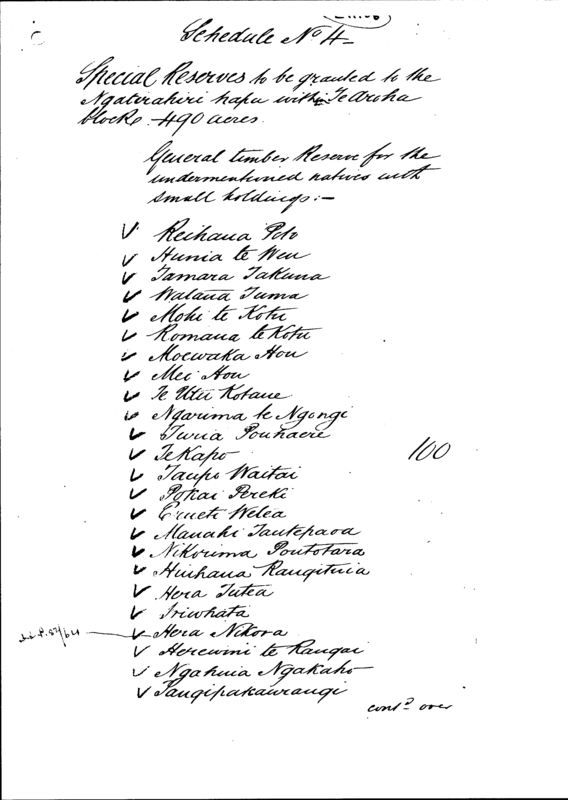 Schedule No 4
Special Reserves to be granted to the
Ngatirahiri hapu within Te Aroha
block. 490 acres.
General timber Reserve for the
undermentioned natives with
small holdings:-
Reihana Poto
Hunia te Weu
Tamara Takuna
Watana Tuma
Mohi te Kotu
Romana te Kotu
Moewaka Hou
Mei Hou
Te Utu Kotane
Ngarima te Ngongi
Turia Pouhaere
Te Kapo 100
Taupo Waitai
Pokai Pereki
Erueti Welea
Manahi Tautepaoa
Nikorima Poututara
Huihana Rangituia
Hera Tutea
Iriwhata
Hera Nikora
Herewini te Rangai
Ngahuia Ngakaho
Tangipakaurangi
contd over